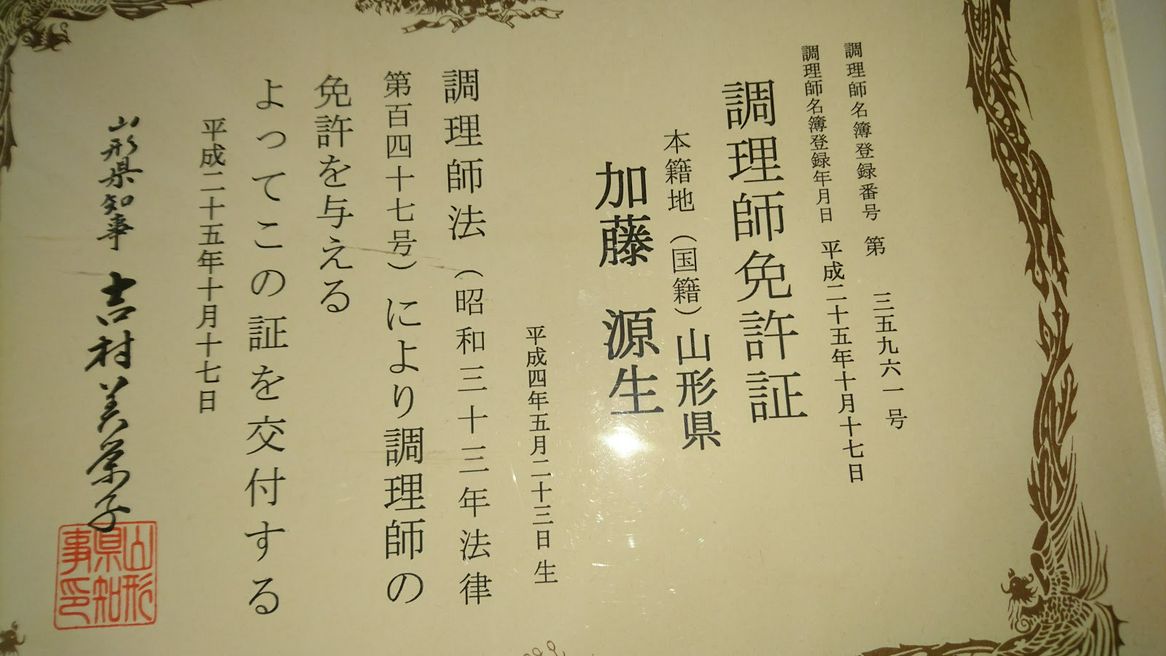 調理師名簿登録番号 第 三五九六一号
調理師名簿登録年月日 平成二十五年十月十七日
調理師免許証
本籍地（国籍）山形県
加藤 源生
平成四年五月二十三日 生
調理師法（昭和三十三年法律
第百四十七号）により調理師の
免許を与える
よってこの証を交付する
平成二十五年十月十七日
山形県知事 吉村美栄子
山形県知事印